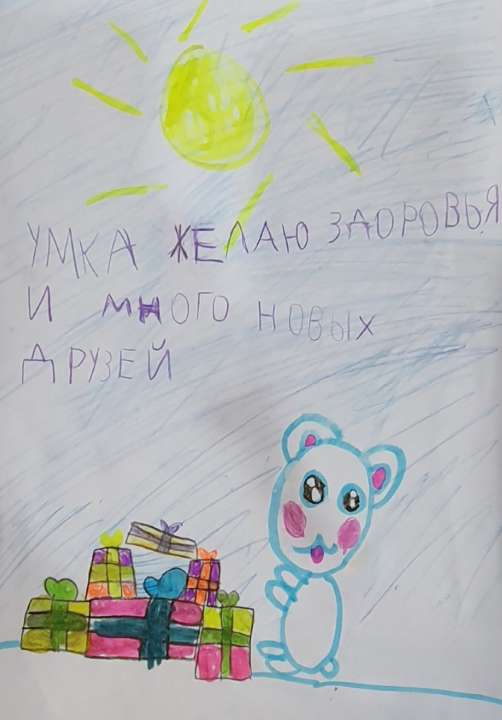 УМКА ЖЕЛАЮ ЗДОРОВЬЯ
И МНОГО НОВЫХ
ДРУЗЕЙ